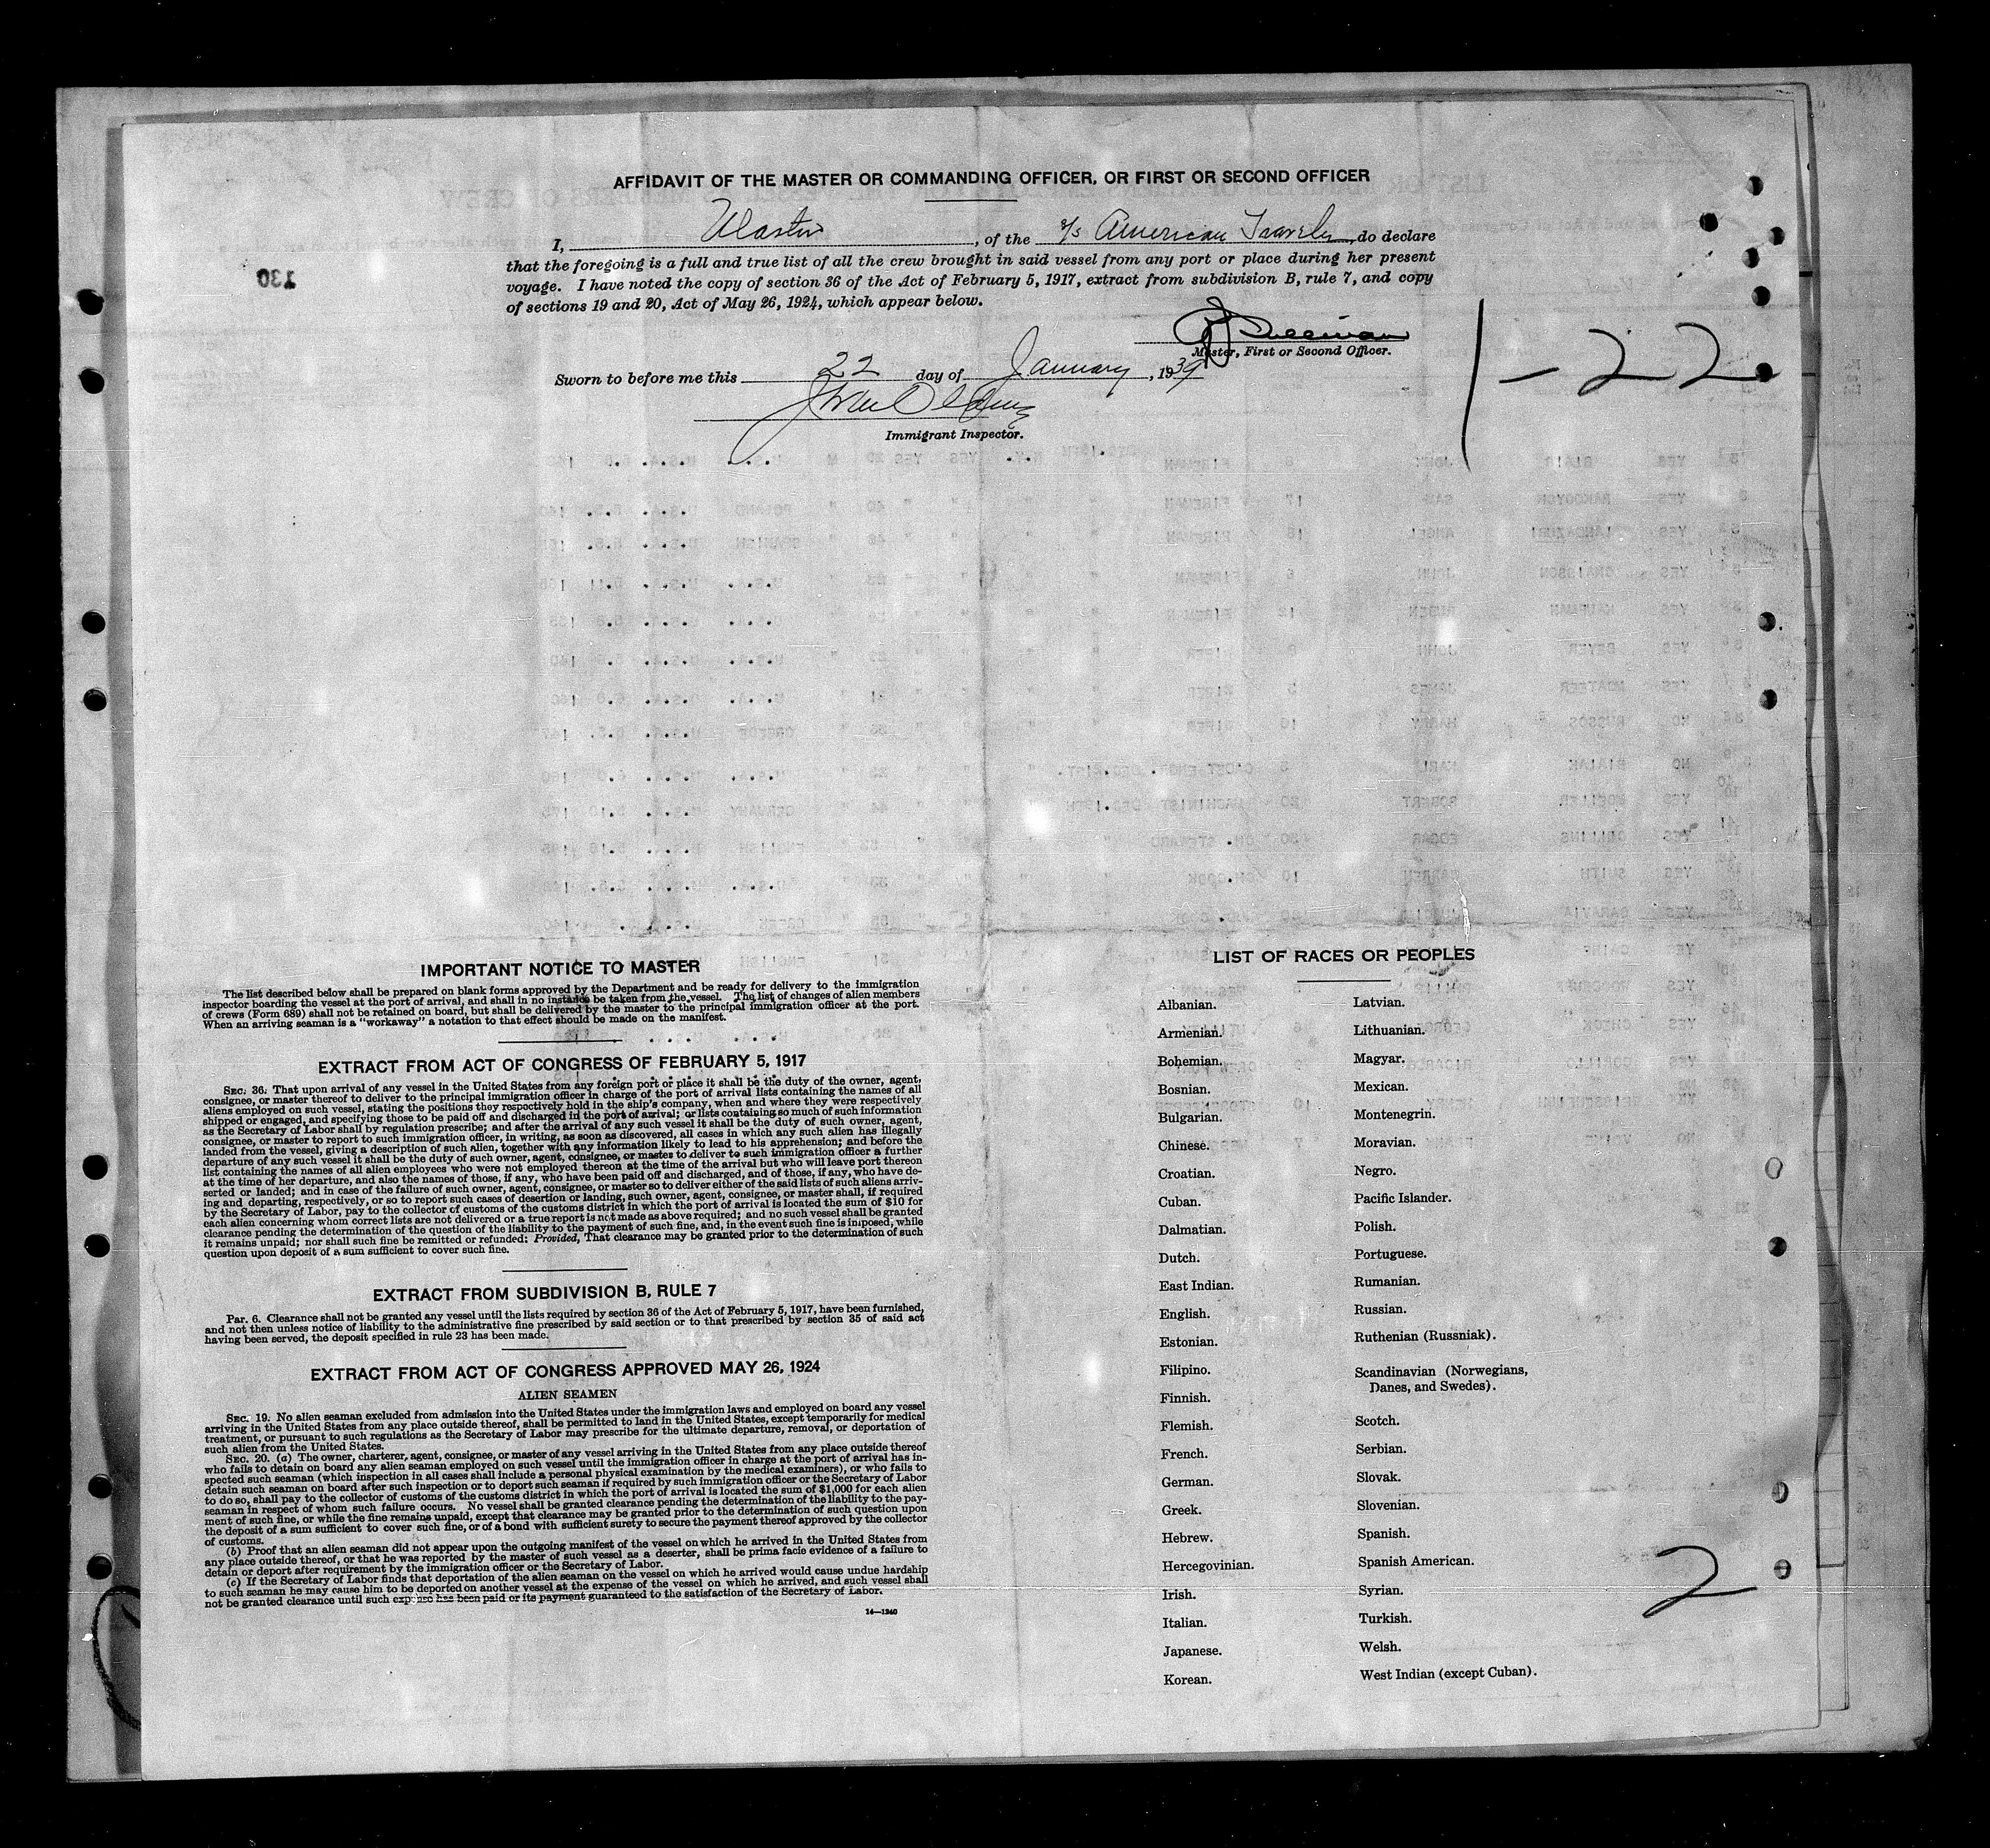 AFFIDAVIT OF THE MASTER OR COMMANDING OFFICER, OR FIRST OR SECOND OFFICER
I, Master, of the S/S American Traveler, do declare
that the foregoing is a full and true list of all the crew brought in said vessel from any port or place during her present
voyage. I have noted the copy of section 36 of the Act of February 5, 1917, extract from subdivision B, rule 7, and copy
of sections 19 and 20, Act of May 26, 1924, which appear below.
130
Sullivan
Master, First or Second Officer.
1-22
Sworn to before me this 22 day of January, 1939
Immigrant Inspector.
IMPORTANT NOTICE TO MASTER
The list described below shall be prepared on blank forms approved by the Department and be ready for delivery to the immigration
inspector boarding the vessel at the port of arrival, and shall in no instance be taken from the vessel. The list of changes of alien members
of crews (Form 689) shall not be retained on board, but shall be delivered by the master to the principal immigration officer at the port.
When an arriving seaman is a "workaway" a notation to that effect should be made on the manifest.
EXTRACT FROM ACT OF CONGRESS OF FEBRUARY 5, 1917
SEC. 36. That upon arrival of any vessel in the United States from any foreign port or place it shall be the duty of the owner, agent,
consignee, or master thereof to deliver to the principal immigration officer in charge of the port of arrival lists containing the names of all
aliens employed on such vessel, stating the positions they respectively hold in the ship's company, when and where they were respectively
shipped or engaged, and specifying those to be paid off and discharged in the port of arrival; or lists containing so much of such information
as the Secretary of Labor shall by regulation prescribe; and after the arrival of any such vessel it shall be the duty of such owner, agent,
consignee, or master to report to such immigration officer, in writing, as soon as discovered, all cases in which any such alien has illegally
landed from the vessel, giving a description of such alien, together with any information likely to lead to his apprehension; and before the
departure of any such vessel it shall be the duty of such owner, agent, consignee, or master to deliver to such immigration officer a further
list containing the names of all alien employees who were not employed thereon at the time of the arrival but who will leave port thereon
at the time of her departure, and also the names of those, if any, who have been paid off and discharged, and of those, if any, who have de-
serted or landed; and in case of the failure of such owner, agent, consignee, or master so to deliver either of the said lists of such aliens arriv-
ing and departing, respectively, or so to report such cases of desertion or landing, such owner, agent, consignee, or master shall, if required
by the Secretary of Labor, pay to the collector of customs of the customs district in which the port of arrival is located the sum of $10 for
each alien concerning whom correct lists are not delivered or a true report is not made as above required; and no such vessel shall be granted
clearance pending the determination of the question of the liability to the payment of such fine, and, in the event such fine is imposed, while
it remains unpaid; nor shall such fine be remitted or refunded: Provided, That clearance may be granted prior to the determination of such
question upon deposit of a sum sufficient to cover such fine.
EXTRACT FROM SUBDIVISION B, RULE 7
Par. 6. Clearance shall not be granted any vessel until the lists required by section 36 of the Act of February 5, 1917, have been furnished,
and not then unless notice of liability to the administrative fine prescribed by said section or to that prescribed by section 35 of said act
having been served, the deposit specified in rule 23 has been made.
EXTRACT FROM ACT OF CONGRESS APPROVED MAY 26, 1924
ALIEN SEAMEN
SEC. 19. No alien seaman excluded from admission into the United States under the immigration laws and employed on board any vessel
arriving in the United States from any place outside thereof, shall be permitted to land in the United States, except temporarily for medical
treatment, or pursuant to such regulations as the Secretary of Labor may prescribe for the ultimate departure, removal, or deportation of
such alien from the United States.
SEC. 20. (a) The owner, charterer, agent, consignee, or master of any vessel arriving in the United States from any place outside thereof
who fails to detain on board any alien seaman employed on such vessel until the immigration officer in charge at the port of arrival has in-
spected such seaman (which inspection in all cases shall include a personal physical examination by the medical examiners), or who fails to
detain such seaman on board after such inspection or to deport such seaman if required by such immigration officer or the Secretary of Labor
to do so, shall pay to the collector of customs of the customs district in which the port of arrival is located the sum of $1,000 for each alien
seaman in respect of whom such failure occurs. No vessel shall be granted clearance pending the determination of the liability to the pay-
ment of such fine, or while the fine remains unpaid, except that clearance may be granted prior to the determination of such question upon
the deposit of a sum sufficient to cover such fine, or of a bond with sufficient surety to secure the payment thereof approved by the collector
of customs.
(b) Proof that an alien seaman did not appear upon the outgoing manifest of the vessel on which he arrived in the United States from
any place outside thereof, or that he was reported by the master of such vessel as a deserter, shall be prima facie evidence of a failure to
detain or deport after requirement by the immigration officer or the Secretary of Labor.
(c) If the Secretary of Labor finds that deportation of the alien seaman on the vessel on which he arrived would cause undue hardship
to such seaman he may cause him to be deported on another vessel at the expense of the vessel on which he arrived, and such vessel shall
not be granted clearance until such expense has been paid or its payment guaranteed to the satisfaction of the Secretary of Labor.
14—1240
LIST OF RACES OR PEOPLES
Albanian.
Armenian.
Bohemian.
Bosnian.
Bulgarian.
Chinese.
Croatian.
Cuban.
Dalmatian.
Dutch.
East Indian.
English.
Estonian.
Filipino.
Finnish.
Flemish.
French.
German.
Greek.
Hebrew.
Hercegovinian.
Irish.
Italian.
Japanese.
Korean.
Latvian.
Lithuanian.
Magyar.
Mexican.
Montenegrin.
Moravian.
Negro.
Pacific Islander.
Polish.
Portuguese.
Rumanian.
Russian.
Ruthenian (Russniak).
Scandinavian (Norwegians,
Danes, and Swedes).
Scotch.
Serbian.
Slovak.
Slovenian.
Spanish.
Spanish American.
Syrian.
Turkish.
Welsh.
West Indian (except Cuban).
2